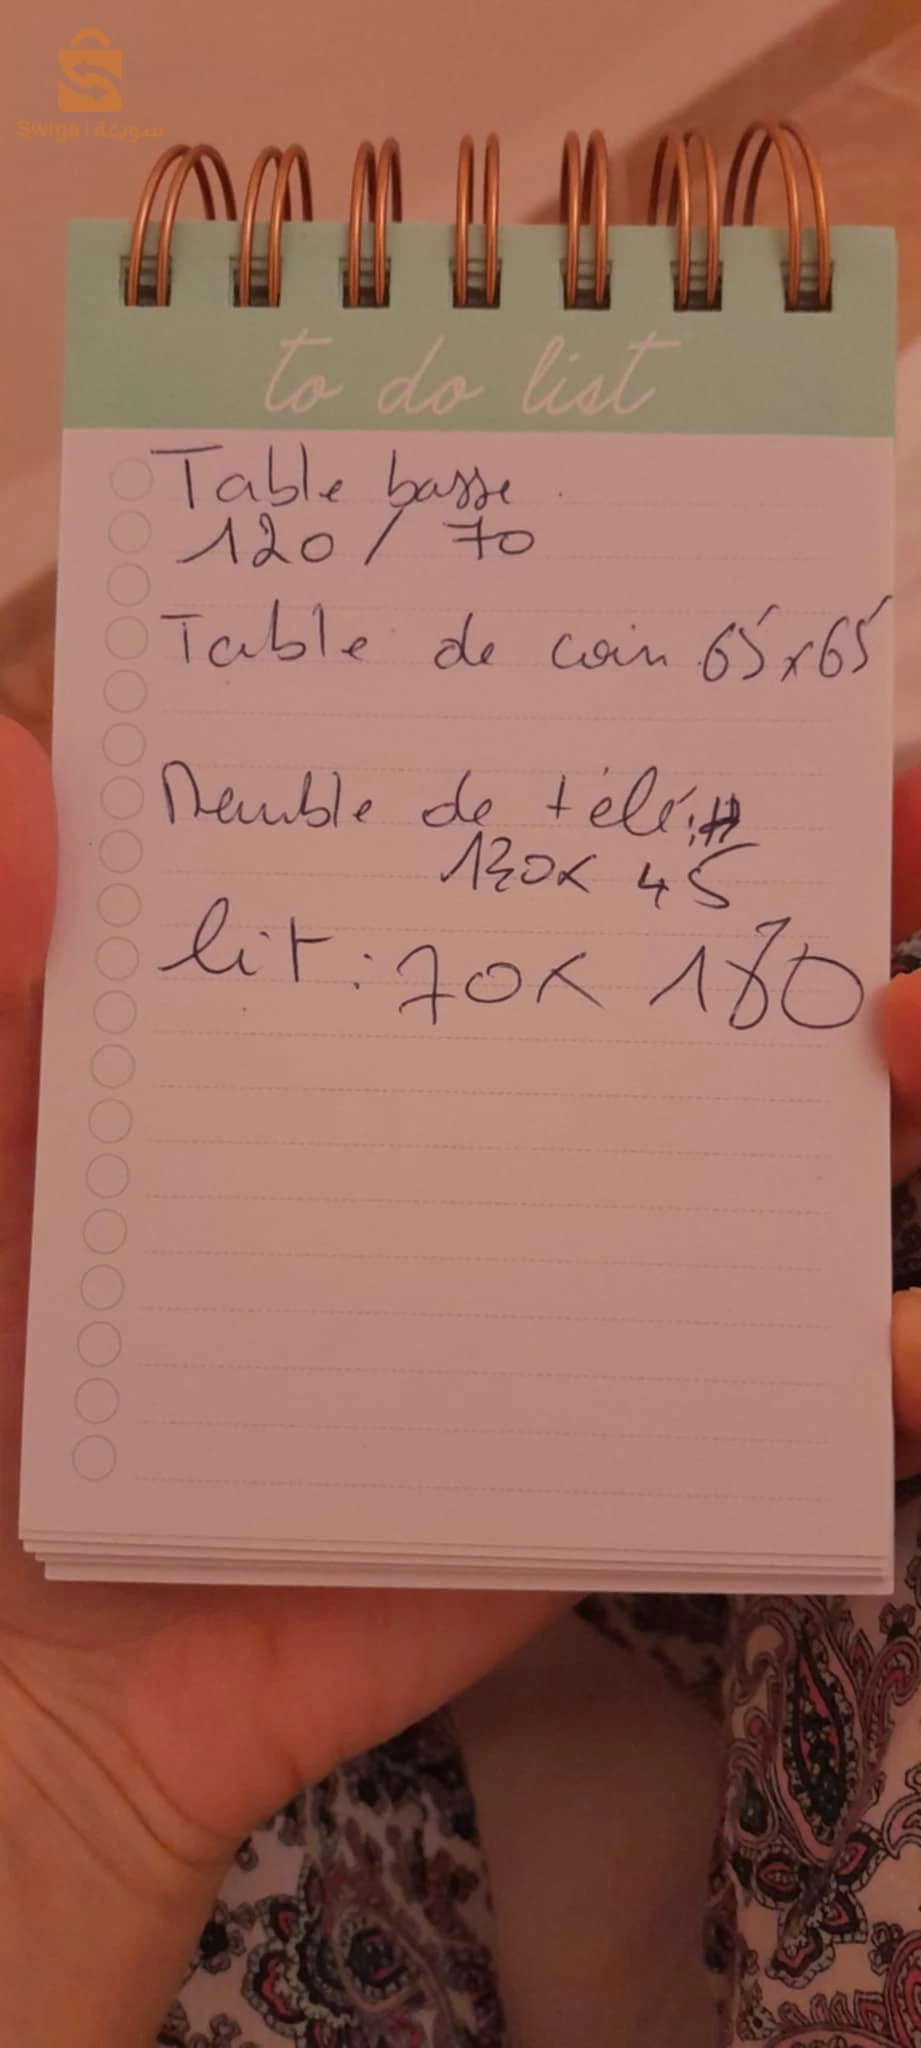 Swiga | سويقة
to do list
Table basse
120 / 70
Table de coin 65x65
Meuble de télé:
130x 45
lit: 70x 180